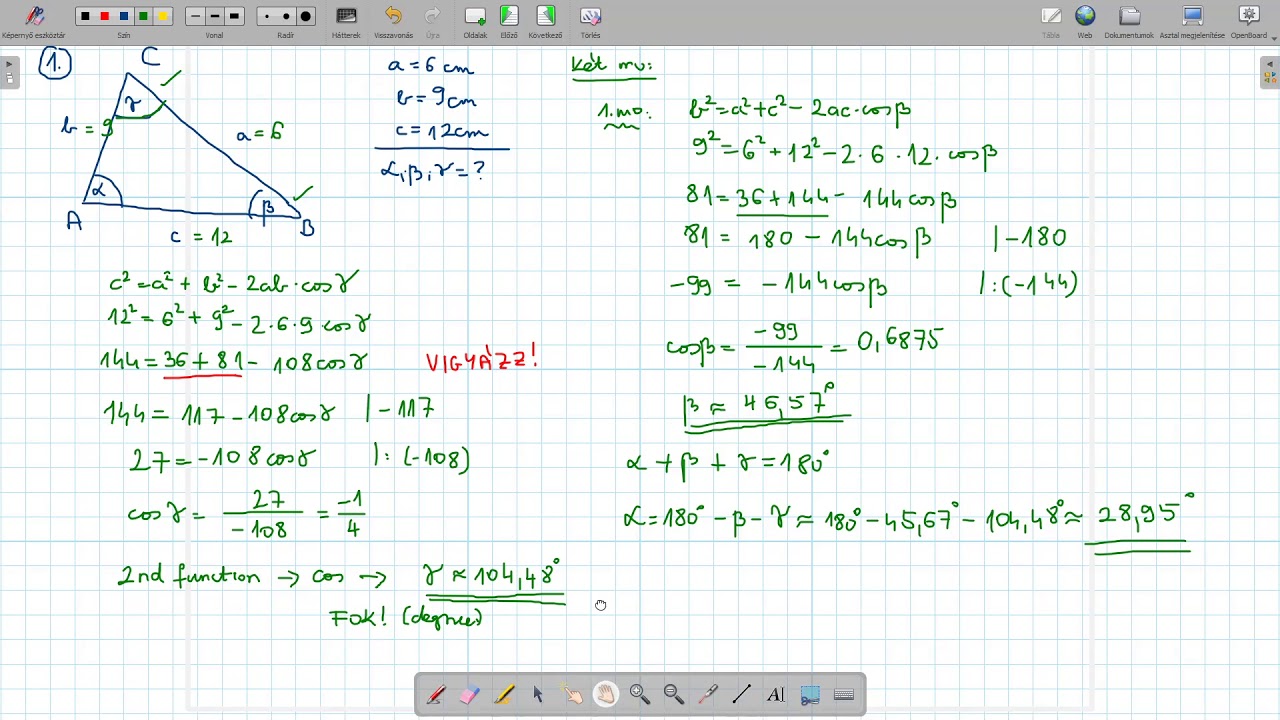 Képernyő eszköztár
Szín
Vonal
Radír
Hátterek
Visszavonás
Oldalak
Előző
Következő
Törlés
Tábla
Web
Dokumentumok
Asztal megjelenítése
OpenBoard
1.
C
γ
b = 9
a = 6
α
β
A
B
c = 12
a = 6 cm
b = 9 cm
c = 12 cm
α, β, γ = ?
c² = a² + b² - 2ab · cos γ
12² = 6² + 9² - 2 · 6 · 9 cos γ
144 = 36 + 81 - 108 cos γ
VIGYÁZZ!
144 = 117 - 108 cos γ | - 117
27 = -108 cos γ | : (-108)
cos γ = 27 / -108 = -1 / 4
2nd function → cos → γ ≈ 104,48°
FOK! (degree)
Két mo:
1. mo:
b² = a² + c² - 2ac · cos β
9² = 6² + 12² - 2 · 6 · 12 · cos β
81 = 36 + 144 - 144 cos β
81 = 180 - 144 cos β | - 180
-99 = -144 cos β | : (-144)
cos β = -99 / -144 = 0,6875
β ≈ 46,57°
α + β + γ = 180°
α = 180° - β - γ ≈ 180° - 45,67° - 104,48° ≈ 28,95°
AI